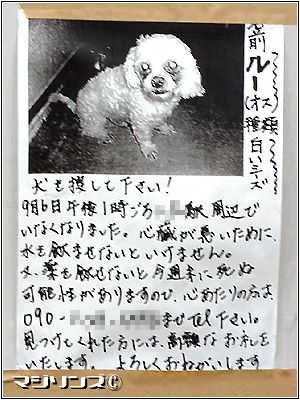 名前
ルー
(オス)
種類
白い
犬を捜して下さい!
9月6日午後1時ごろ駅周辺で
いなくなりました。心臓が悪いために、
水を飲ませないといけません。
又、薬を飲ませないと今週末に死ぬ
可能性がありますので、心あたりの方は、
090-までTel下さい。
見つけてくれた方には、高額なお礼を
いたします。よろしくおねがいします
マジリンズ©